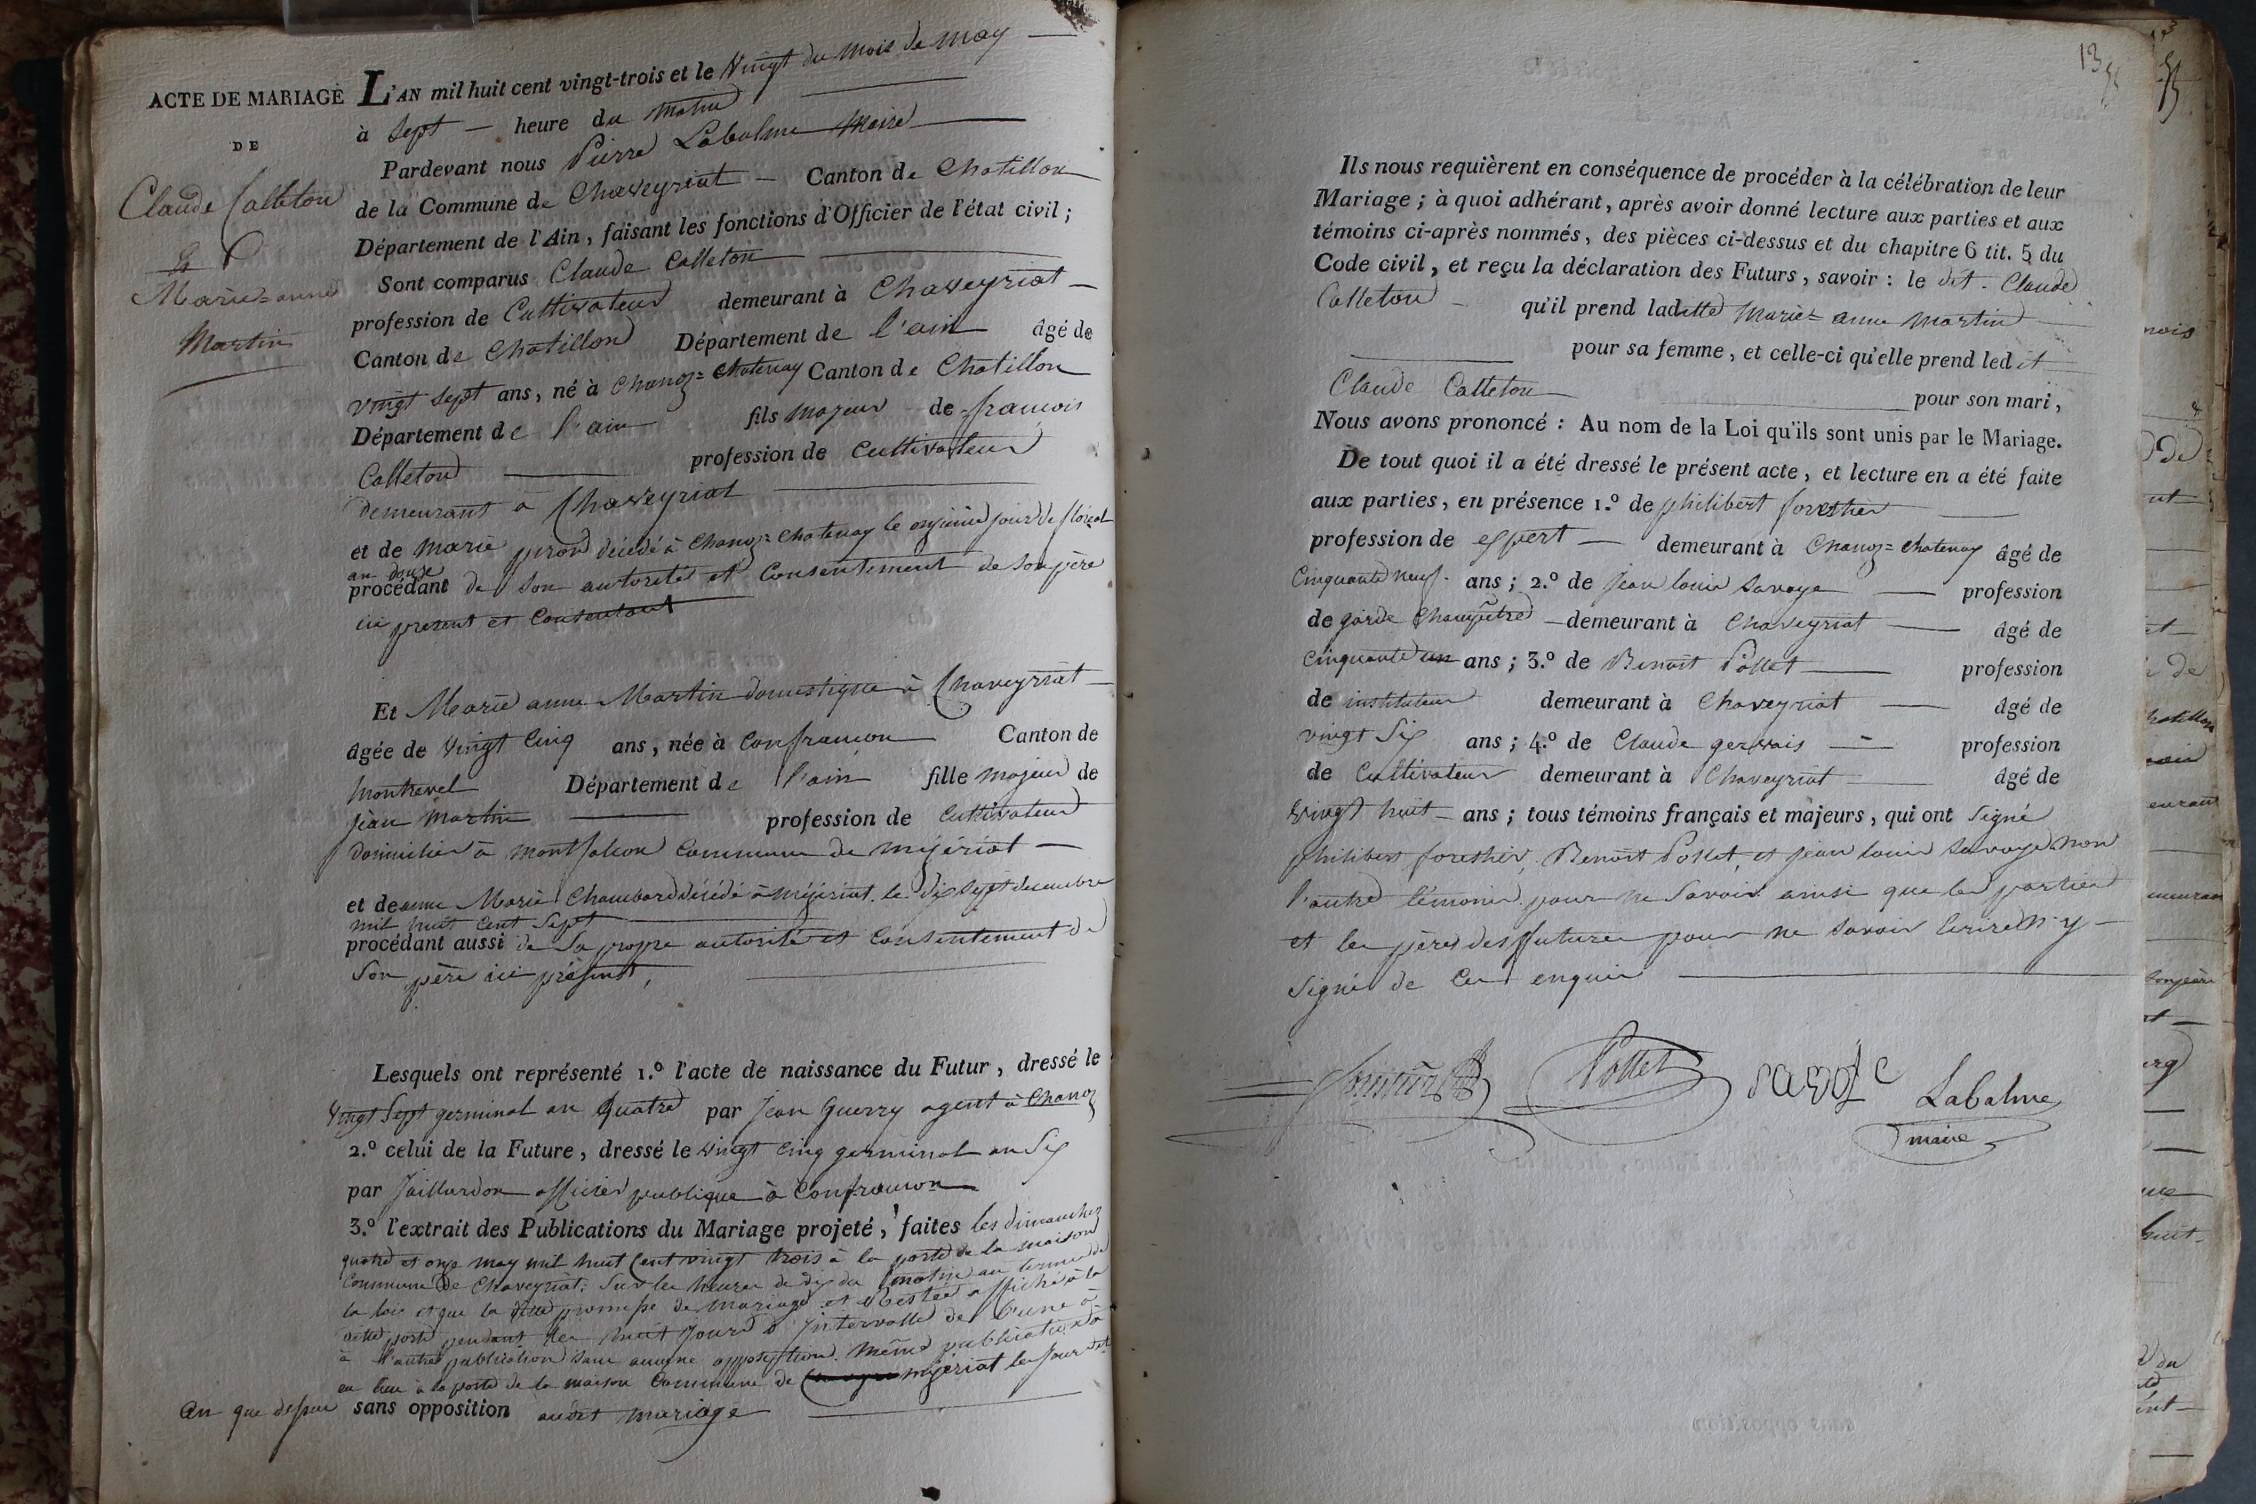 ACTE DE MARIAGE
DE
Claude Calleton
&
Marie=anne
Martin
L'AN mil huit cent vingt-trois et le vingt du mois de may
à sept heure du matin
Pardevant nous Pierre Labalme Maire
de la Commune de Chaveyriat Canton de Chatillon
Département de l'Ain, faisant les fonctions d'Officier de l'état civil ;
Sont comparus Claude Calleton
profession de Cultivateur demeurant à Chaveyriat
Canton de Chatillon Département de l'ain âgé de
vingt sept ans, né à Chanoz=Chatenay Canton de Chatillon
Département de l'ain fils majeur de francois
Calleton profession de Cultivateur
demeurant à Chaveyriat
et de marie décédé à Chanoz=Chatenay le onzieme jour de floreal
an douze
procédant de son autorité et Consentement de son père
ici present et Consentant
Et Marie anne Martin domestique à Chaveyriat
âgée de vingt cinq ans, née à Confrançon Canton de
montrevel Département de l'ain fille majeur de
jean Martin profession de Cultivateur
domicilier à montfalcon Commune de mézériat
et de anne Marie Chambard décédé à mézériat le dix sept decembre
mil huit cent sept
procédant aussi de sa propre autorité et Consentement de
son père ici présent,
Lesquels ont représenté 1.º l'acte de naissance du Futur, dressé le
vingt sept germinal an quatre par Jean Guerry agent à Chanoz
2.º celui de la Future, dressé le vingt cinq germinal an six
par Jaillardon officier publique à Confrancon
3.º l'extrait des Publications du Mariage projeté, faites les dimanches
quatre et onze may mil huit cent vingt trois à la porte de la maison
Commune de Chaveyriat; sur les heures de dix du matin au terme de
la loi et que la ditte promesse de mariage et restée affiché à la
ditte porte pendant les huit jours d'intervalle de l'une à
à l'autre publication sans aucune opposition. même publication a
eu lieu à la porte de la maison Commune de mézériat les jour et
an que dessus sans opposition audit mariage
13
Ils nous requièrent en conséquence de procéder à la célébration de leur
Mariage ; à quoi adhérant, après avoir donné lecture aux parties et aux
témoins ci-après nommés, des pièces ci-dessus et du chapitre 6 tit. 5 du
Code civil, et reçu la déclaration des Futurs, savoir : le dit Claude
Calleton qu'il prend laditte Marie=anne Martin
pour sa femme, et celle-ci qu'elle prend ledit
Claude Calleton pour son mari,
Nous avons prononcé : Au nom de la Loi qu'ils sont unis par le Mariage.
De tout quoi il a été dressé le présent acte, et lecture en a été faite
aux parties, en présence 1.º de philibert forestier
profession de expert demeurant à Chanoz=Chatenay âgé de
Cinquante neuf ans ; 2.º de jean louis Savoye profession
de garde Champêtre demeurant à Chaveyriat âgé de
Cinquante un ans ; 3.º de Benoit Pollet profession
de instituteur demeurant à Chaveyriat âgé de
vingt Six ans ; 4.º de Claude gervais profession
de Cultivateur demeurant à Chaveyriat âgé de
vingt huit ans ; tous témoins français et majeurs, qui ont signé
philibert forestier, Benoit Pollet, et jean louis Savoye non
l'autre témoin pour ne savoir ainsi que les parties
et les pères des futures pour ne savoir écrire n'y
signé de ce enquis
Pollet
savoye
Labalme
maire